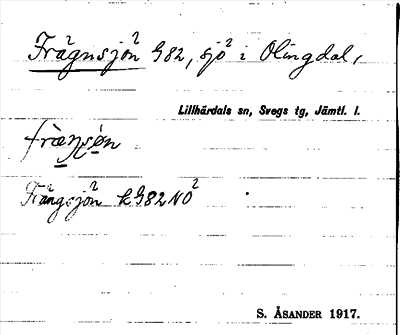 Frägnsjön G82, sjö i Olingdal,
Lillhärdals sn, Svegs tg, Jämtl. l.
Frängsjön k G82 NO
S. ÅSANDER 1917.